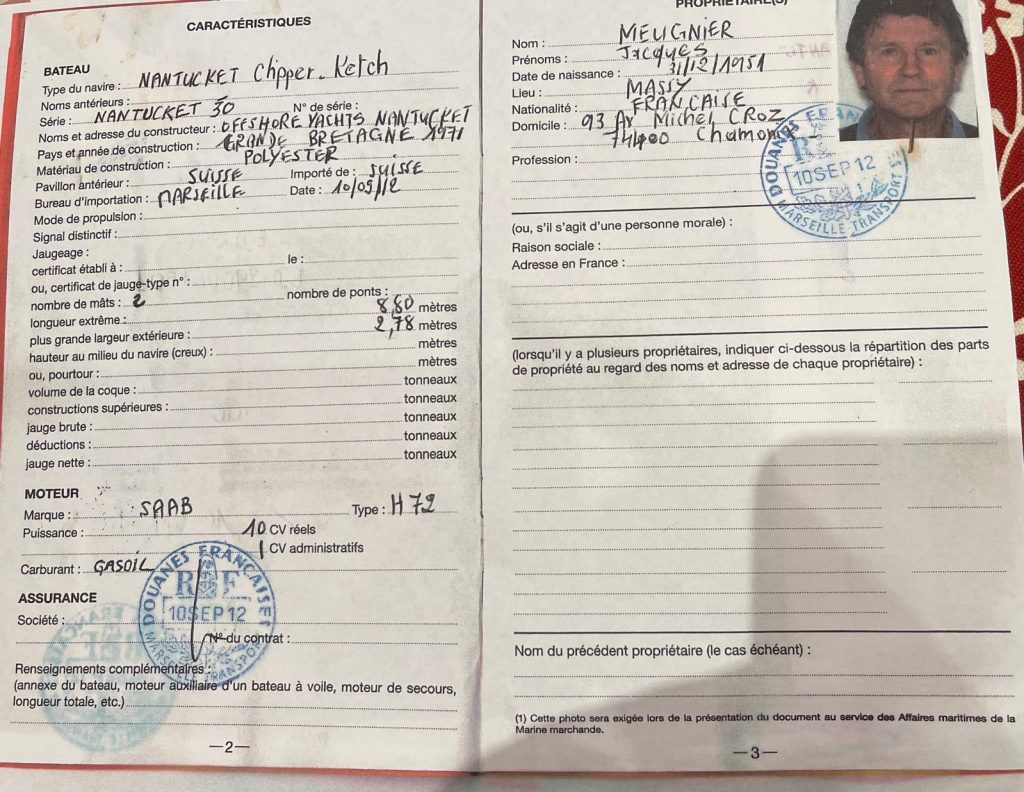 CARACTÉRISTIQUES
BATEAU
Type du navire : NANTUCKET Clipper. Ketch
Noms antérieurs :
Série : NANTUCKET 30 N° de série :
Noms et adresse du constructeur : OFFSHORE YACHTS NANTUCKET
Pays et année de construction : GRANDE BRETAGNE 1971
Matériau de construction : POLYESTER
Pavillon antérieur : SUISSE Importé de : SUISSE
Bureau d'importation : MARSEILLE Date : 10/09/12
Mode de propulsion :
Signal distinctif :
Jaugeage :
certificat établi à : le :
ou, certificat de jauge-type n° :
nombre de mâts : 2 nombre de ponts :
longueur extrême : 8,80 mètres
plus grande largeur extérieure : 2,78 mètres
hauteur au milieu du navire (creux) : mètres
ou, pourtour : mètres
volume de la coque : tonneaux
constructions supérieures : tonneaux
jauge brute : tonneaux
déductions : tonneaux
jauge nette : tonneaux
MOTEUR
Marque : SAAB Type : H 72
Puissance : 10 CV réels
1 CV administratifs
Carburant : GASOIL
ASSURANCE
Société :
N° du contrat :
Renseignements complémentaires :
(annexe du bateau, moteur auxiliaire d'un bateau à voile, moteur de secours,
longueur totale, etc.)
DOUANES FRANÇAISES
RF
10 SEP 12
MARSEILLE-TRANSPORT
—2—
PROPRIÉTAIRE(S)
Nom : MEUGNIER
Prénoms : Jacques
Date de naissance : 31/12/1951
Lieu : MASSY
Nationalité : FRANÇAISE
Domicile : 93 Av Michel CROZ
74400 Chamonix
Profession :
DOUANES FRAN
R
10 SEP 12
MARSEILLE-TRANSPORT
(ou, s'il s'agit d'une personne morale) :
Raison sociale :
Adresse en France :
(lorsqu'il y a plusieurs propriétaires, indiquer ci-dessous la répartition des parts
de propriété au regard des noms et adresse de chaque propriétaire) :
Nom du précédent propriétaire (le cas échéant) :
(1) Cette photo sera exigée lors de la présentation du document au service des Affaires maritimes de la
Marine marchande.
—3—